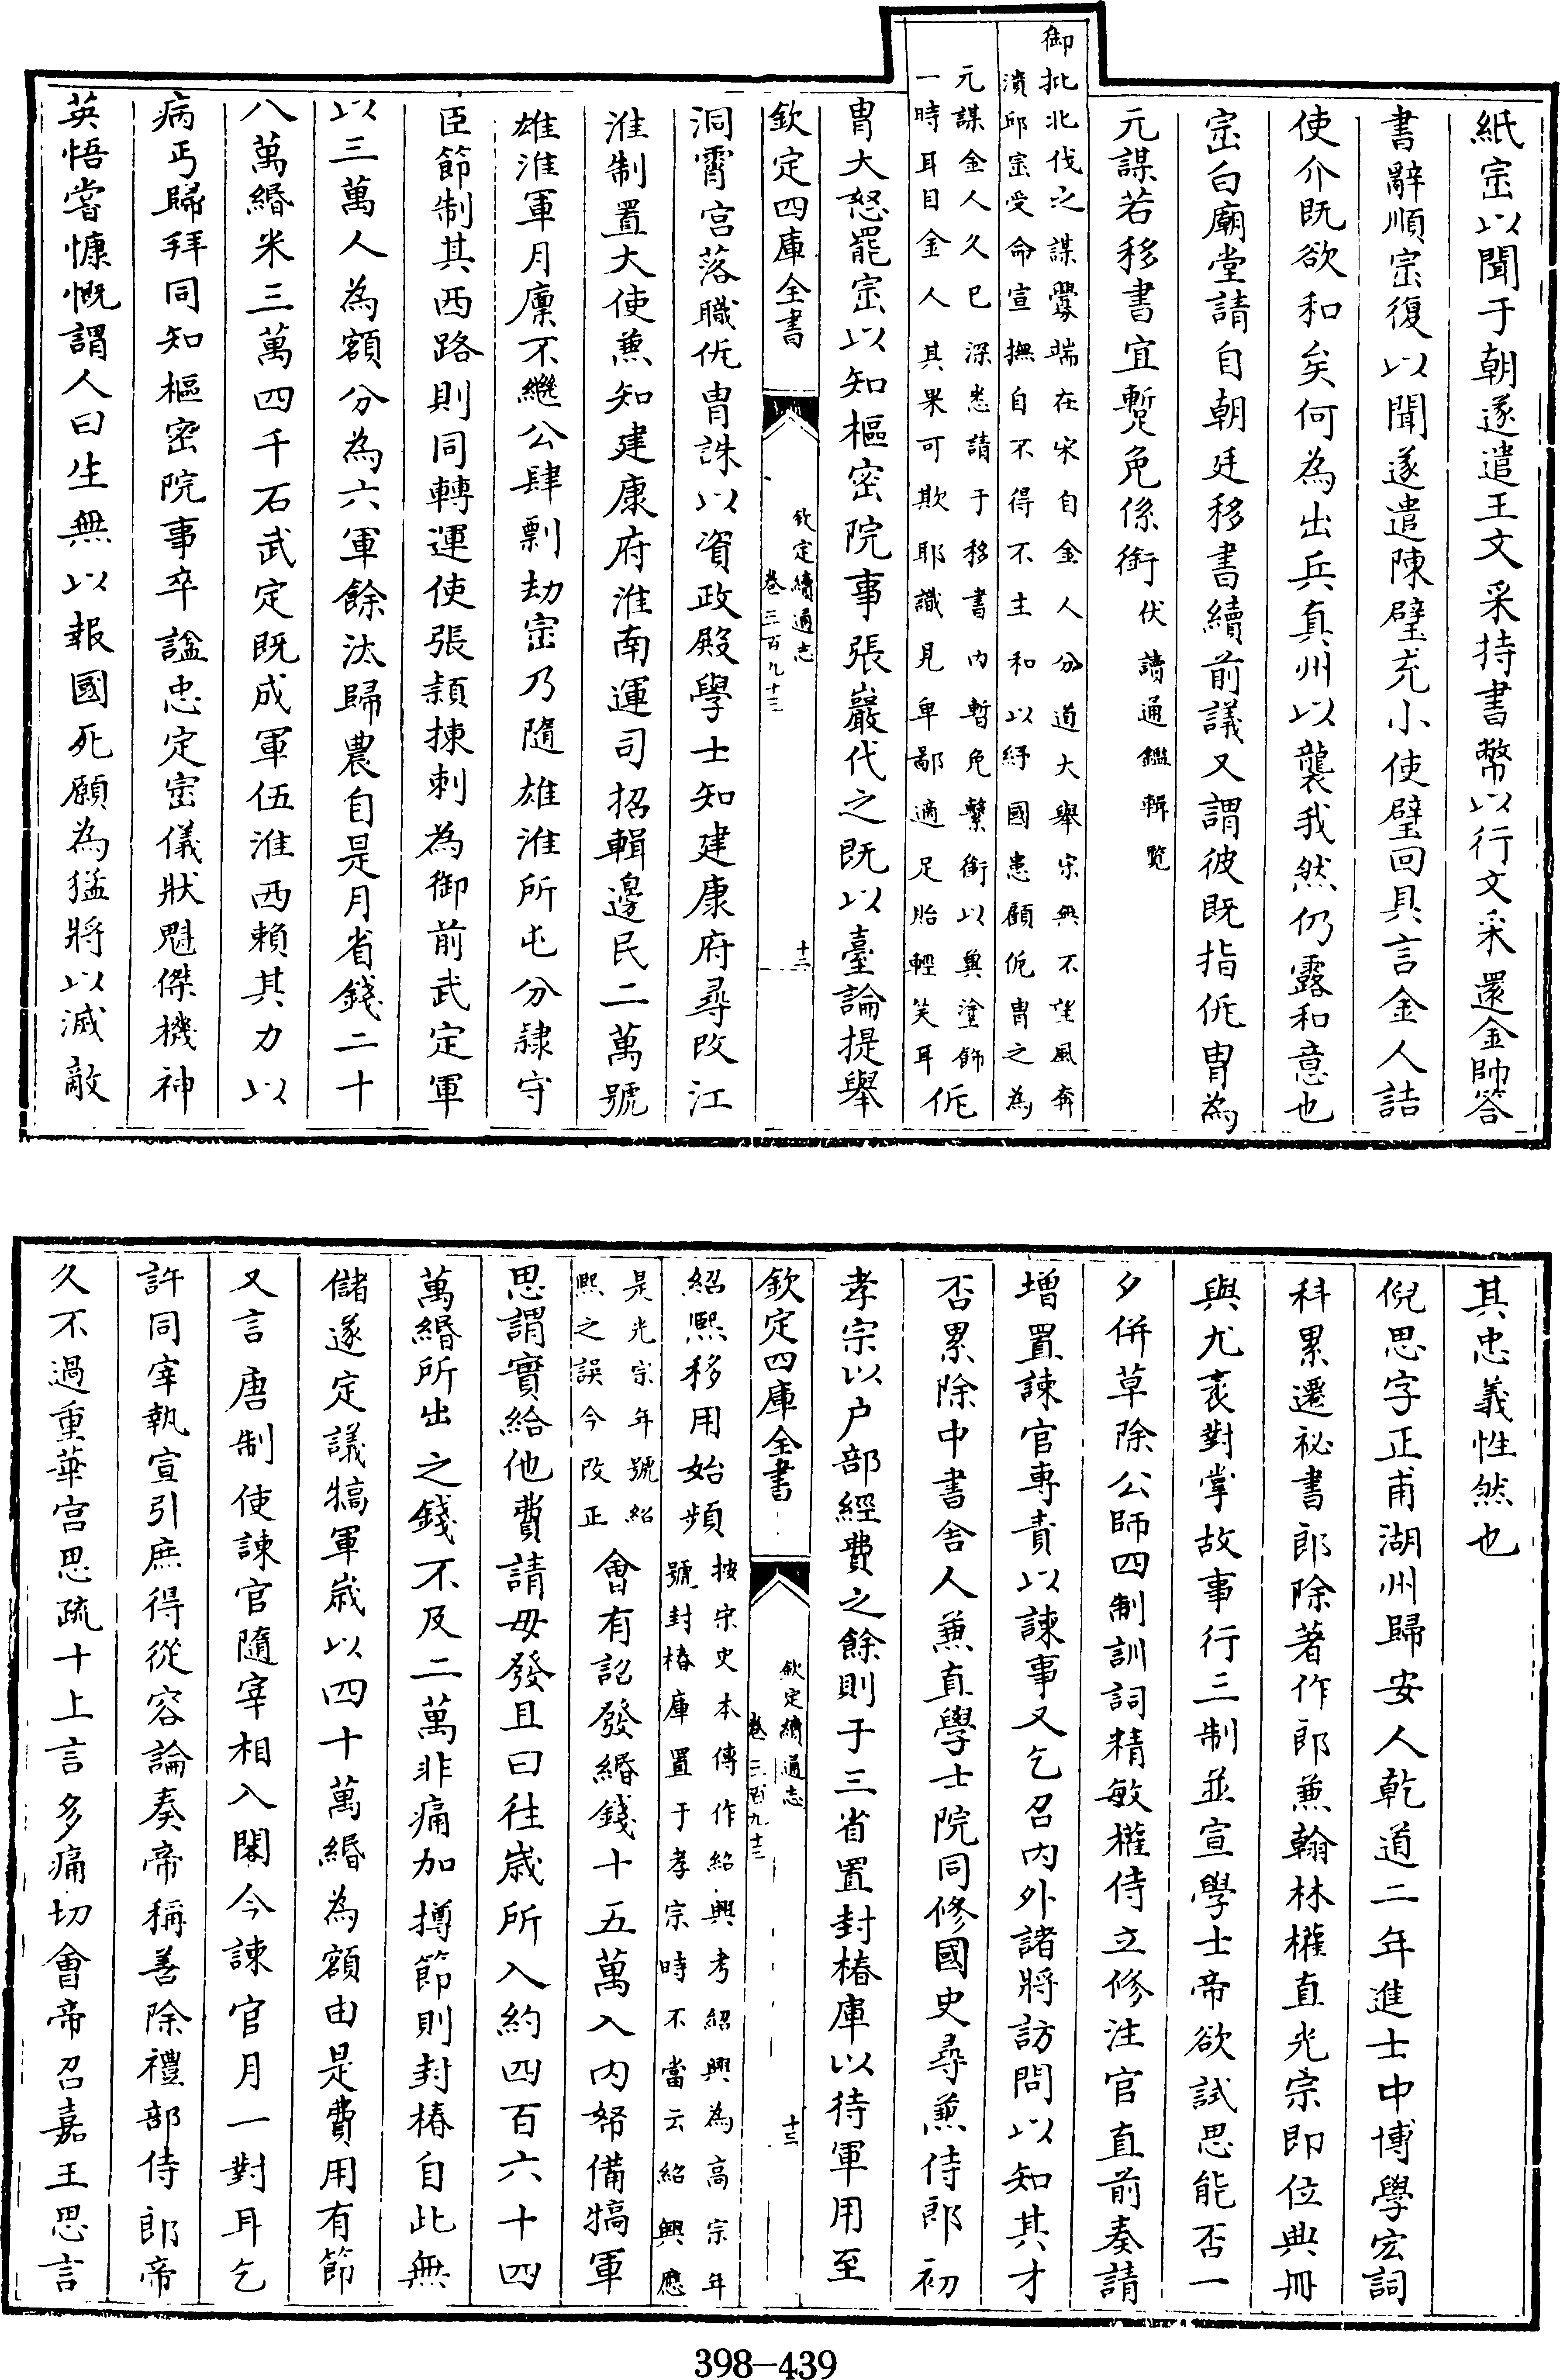 紙崈以聞于朝遂遣王文采持書幣以行文采還金帥答
書辭順崈復以聞遂遣陳璧充小使璧回具言金人詰
使介既欲和矣何為出兵真州以襲我然仍露和意也
崈白廟堂請自朝廷移書續前議又謂彼既指侂胄為
元謀若移書宜暫免係銜伏讀通鑑輯覽
御批北伐之謀釁端在宋自金人分道大舉宋無不望風奔
潰邱崈受命宣撫自不得不主和以紓國患顧侂胄之為
元謀金人久已深悉請于移書內暫免繫銜以冀塗飾
一時耳目金人其果可欺耶識見卑鄙適足貽輕笑耳侂
胄大怒罷崈以知樞密院事張巖代之既以臺論提舉
欽定四庫全書
欽定續通志
卷三百九十三
十二
洞霄宮落職侂胄誅以資政殿學士知建康府尋改江
淮制置大使兼知建康府淮南運司招輯邊民二萬號
雄淮軍月廩不繼公肆剽劫崈乃隨雄淮所屯分隸守
臣節制其西路則同轉運使張穎揀刺為御前武定軍
以三萬人為額分為六軍餘汰歸農自是月省錢二十
八萬緡米三萬四千石武定既成軍伍淮西賴其力以
病丐歸拜同知樞密院事卒諡忠定崈儀狀魁傑機神
英悟嘗慷慨謂人曰生無以報國死願為猛將以滅敵
其忠義性然也
倪思字正甫湖州歸安人乾道二年進士中博學宏詞
科累遷祕書郎除著作郎兼翰林權直光宗即位典冊
與尤袤對掌故事行三制並宣學士帝欲試思能否一
夕併草除公師四制訓詞精敏權侍立修注官直前奏請
增置諫官專責以諫事又乞召內外諸將訪問以知其才
否累除中書舍人兼直學士院同修國史尋兼侍郎初
孝宗以户部經費之餘則于三省置封樁庫以待軍用至
欽定四庫全書
欽定續通志
卷三百九十三
十三
紹熙移用始頻按宋史本傳作紹興考紹興為高宗年
號封樁庫置于孝宗時不當云紹興應
是光宗年號紹
熙之誤今改正會有詔發緡錢十五萬入內帑備犒軍
思謂實給他費請毋發且曰往歲所入約四百六十四
萬緡所出之錢不及二萬非痛加撙節則封樁自此無
儲遂定議犒軍歲以四十萬緡為額由是費用有節
又言唐制使諫官隨宰相入閤今諫官月一對耳乞
許同宰執宣引庶得從容論奏帝稱善除禮部侍郎帝
久不過重華宮思疏十上言多痛切會帝召嘉王思言
398-439